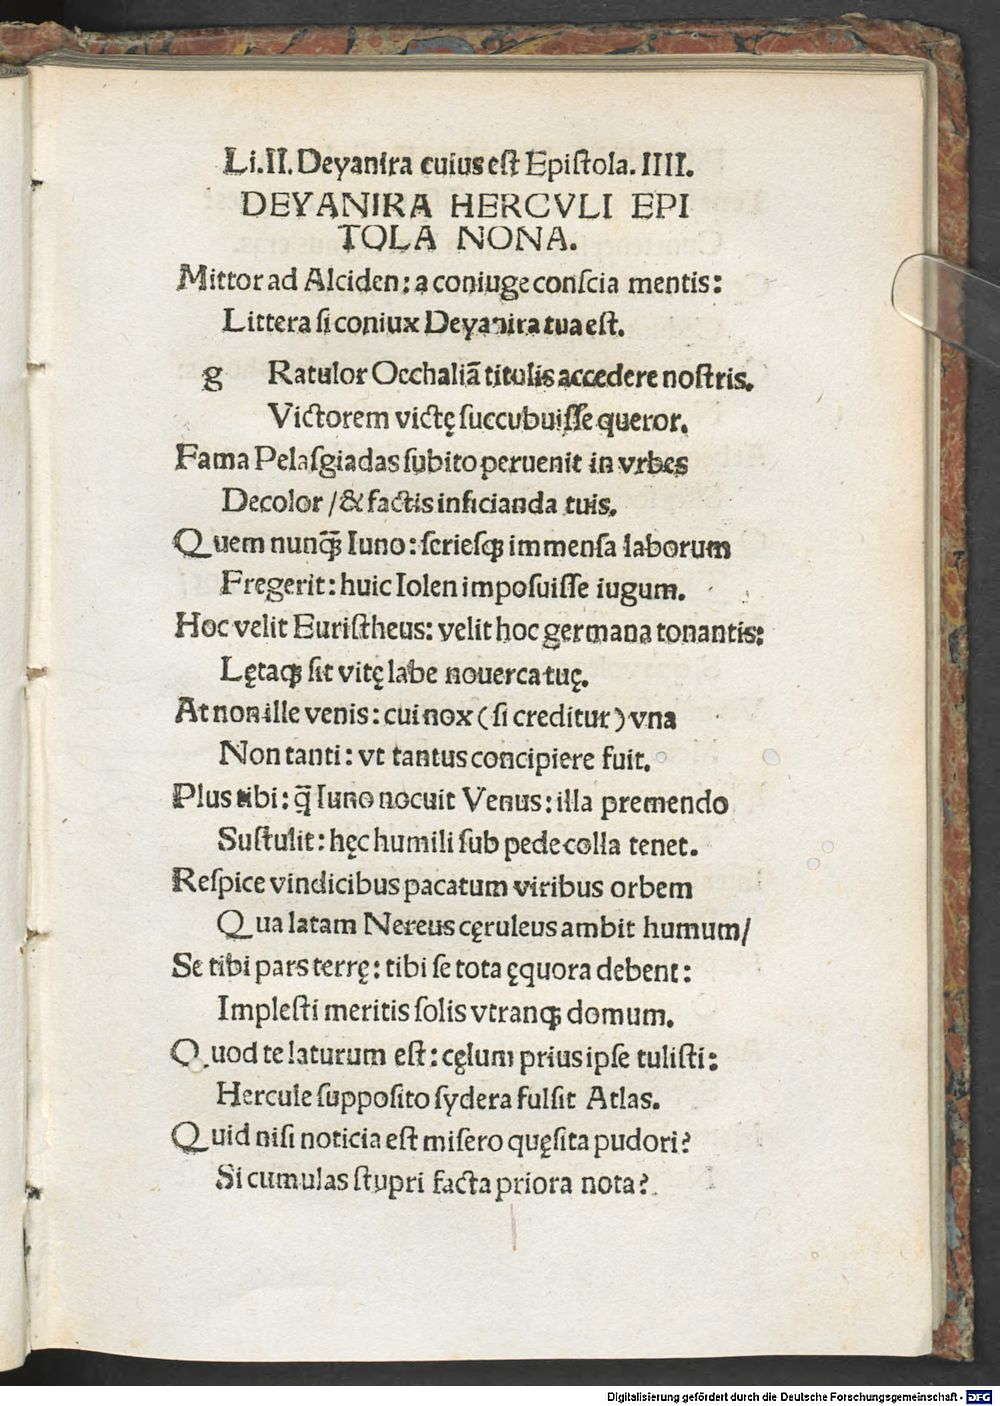 Li.II. Deyanira cuius eſt Epiſtola. IIII.
DEYANIRA HERCVLI EPI
TOLA NONA.
Mittor ad Alciden: a coniuge conſcia mentis:
Littera ſi coniux Deyanira tua eſt.
g Ratulor Occhaliā titulis accedere noſtris.
Victorem victę ſuccubuiſſe queror.
Fama Pelaſgiadas ſubito peruenit in vrbes
Decolor / & factis inficianda tuis.
Quem nunꝗ̄ Iuno: ſerieſꝗ immenſa laborum
Fregerit: huic Iolen impoſuiſſe iugum.
Hoc velit Euriſtheus: velit hoc germana tonantis:
Lętaꝗ ſit vitę labe nouerca tuę.
At non ille venis: cui nox (ſi creditur) vna
Non tanti: vt tantus concipiere fuit.
Plus tibi: q̄ Iuno nocuit Venus: illa premendo
Suſtulit: hęc humili ſub pede colla tenet.
Reſpice vindicibus pacatum viribus orbem
Qua latam Nereus cęruleus ambit humum/
Se tibi pars terrę: tibi ſe tota ęquora debent:
Impleſti meritis ſolis vtranꝗ domum.
Quod te laturum eſt: cęlum prius ipſe tuliſti:
Hercule ſuppoſito ſydera fulſit Atlas.
Quid niſi noticia eſt miſero quęſita pudori?
Si cumulas ſtupri facta priora nota?
Digitalisierung gefördert durch die Deutsche Forschungsgemeinschaft - DFG